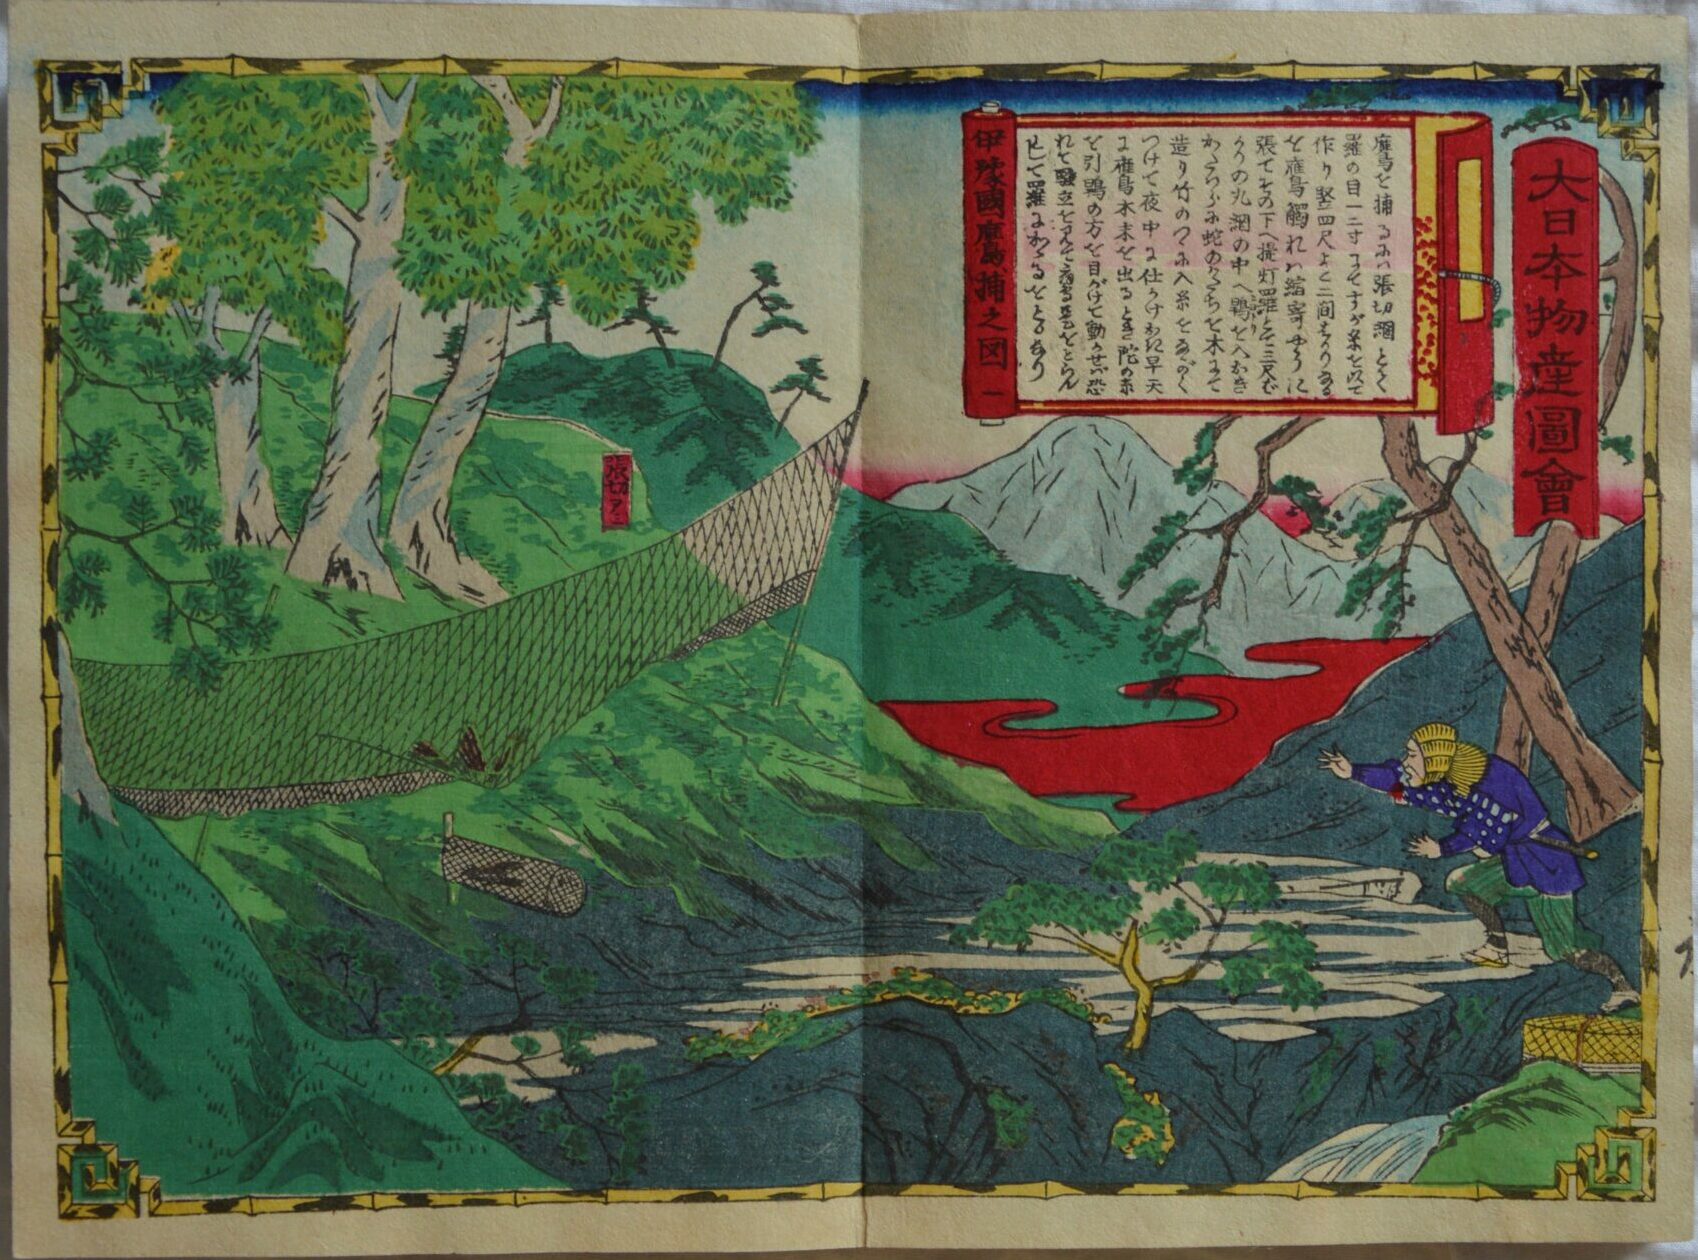 大日本物産圖會
鷹鳥を捕るにハ張切網とて
羅の目一二寸にしてすが糸を以て
作り竪四尺よこ二間ばかりなる
を鷹鳥觸れハ縮寄やうに
張てその下へ提灯羅とて三尺ば
かりの丸網の中へ鵯を入おき
かたハらに蛇のかたちを木にて
造り竹のつゝに入糸をながく
つけて夜中に仕かけおき早天
に鷹鳥木末を出るとき蛇の糸
を引鵯の方を目がけて動かせバ恐
れて騒立を見て鷹是をとらん
として羅にかゝるをとるなり
伊豫國鷹鳥捕之図 一
張切アミ